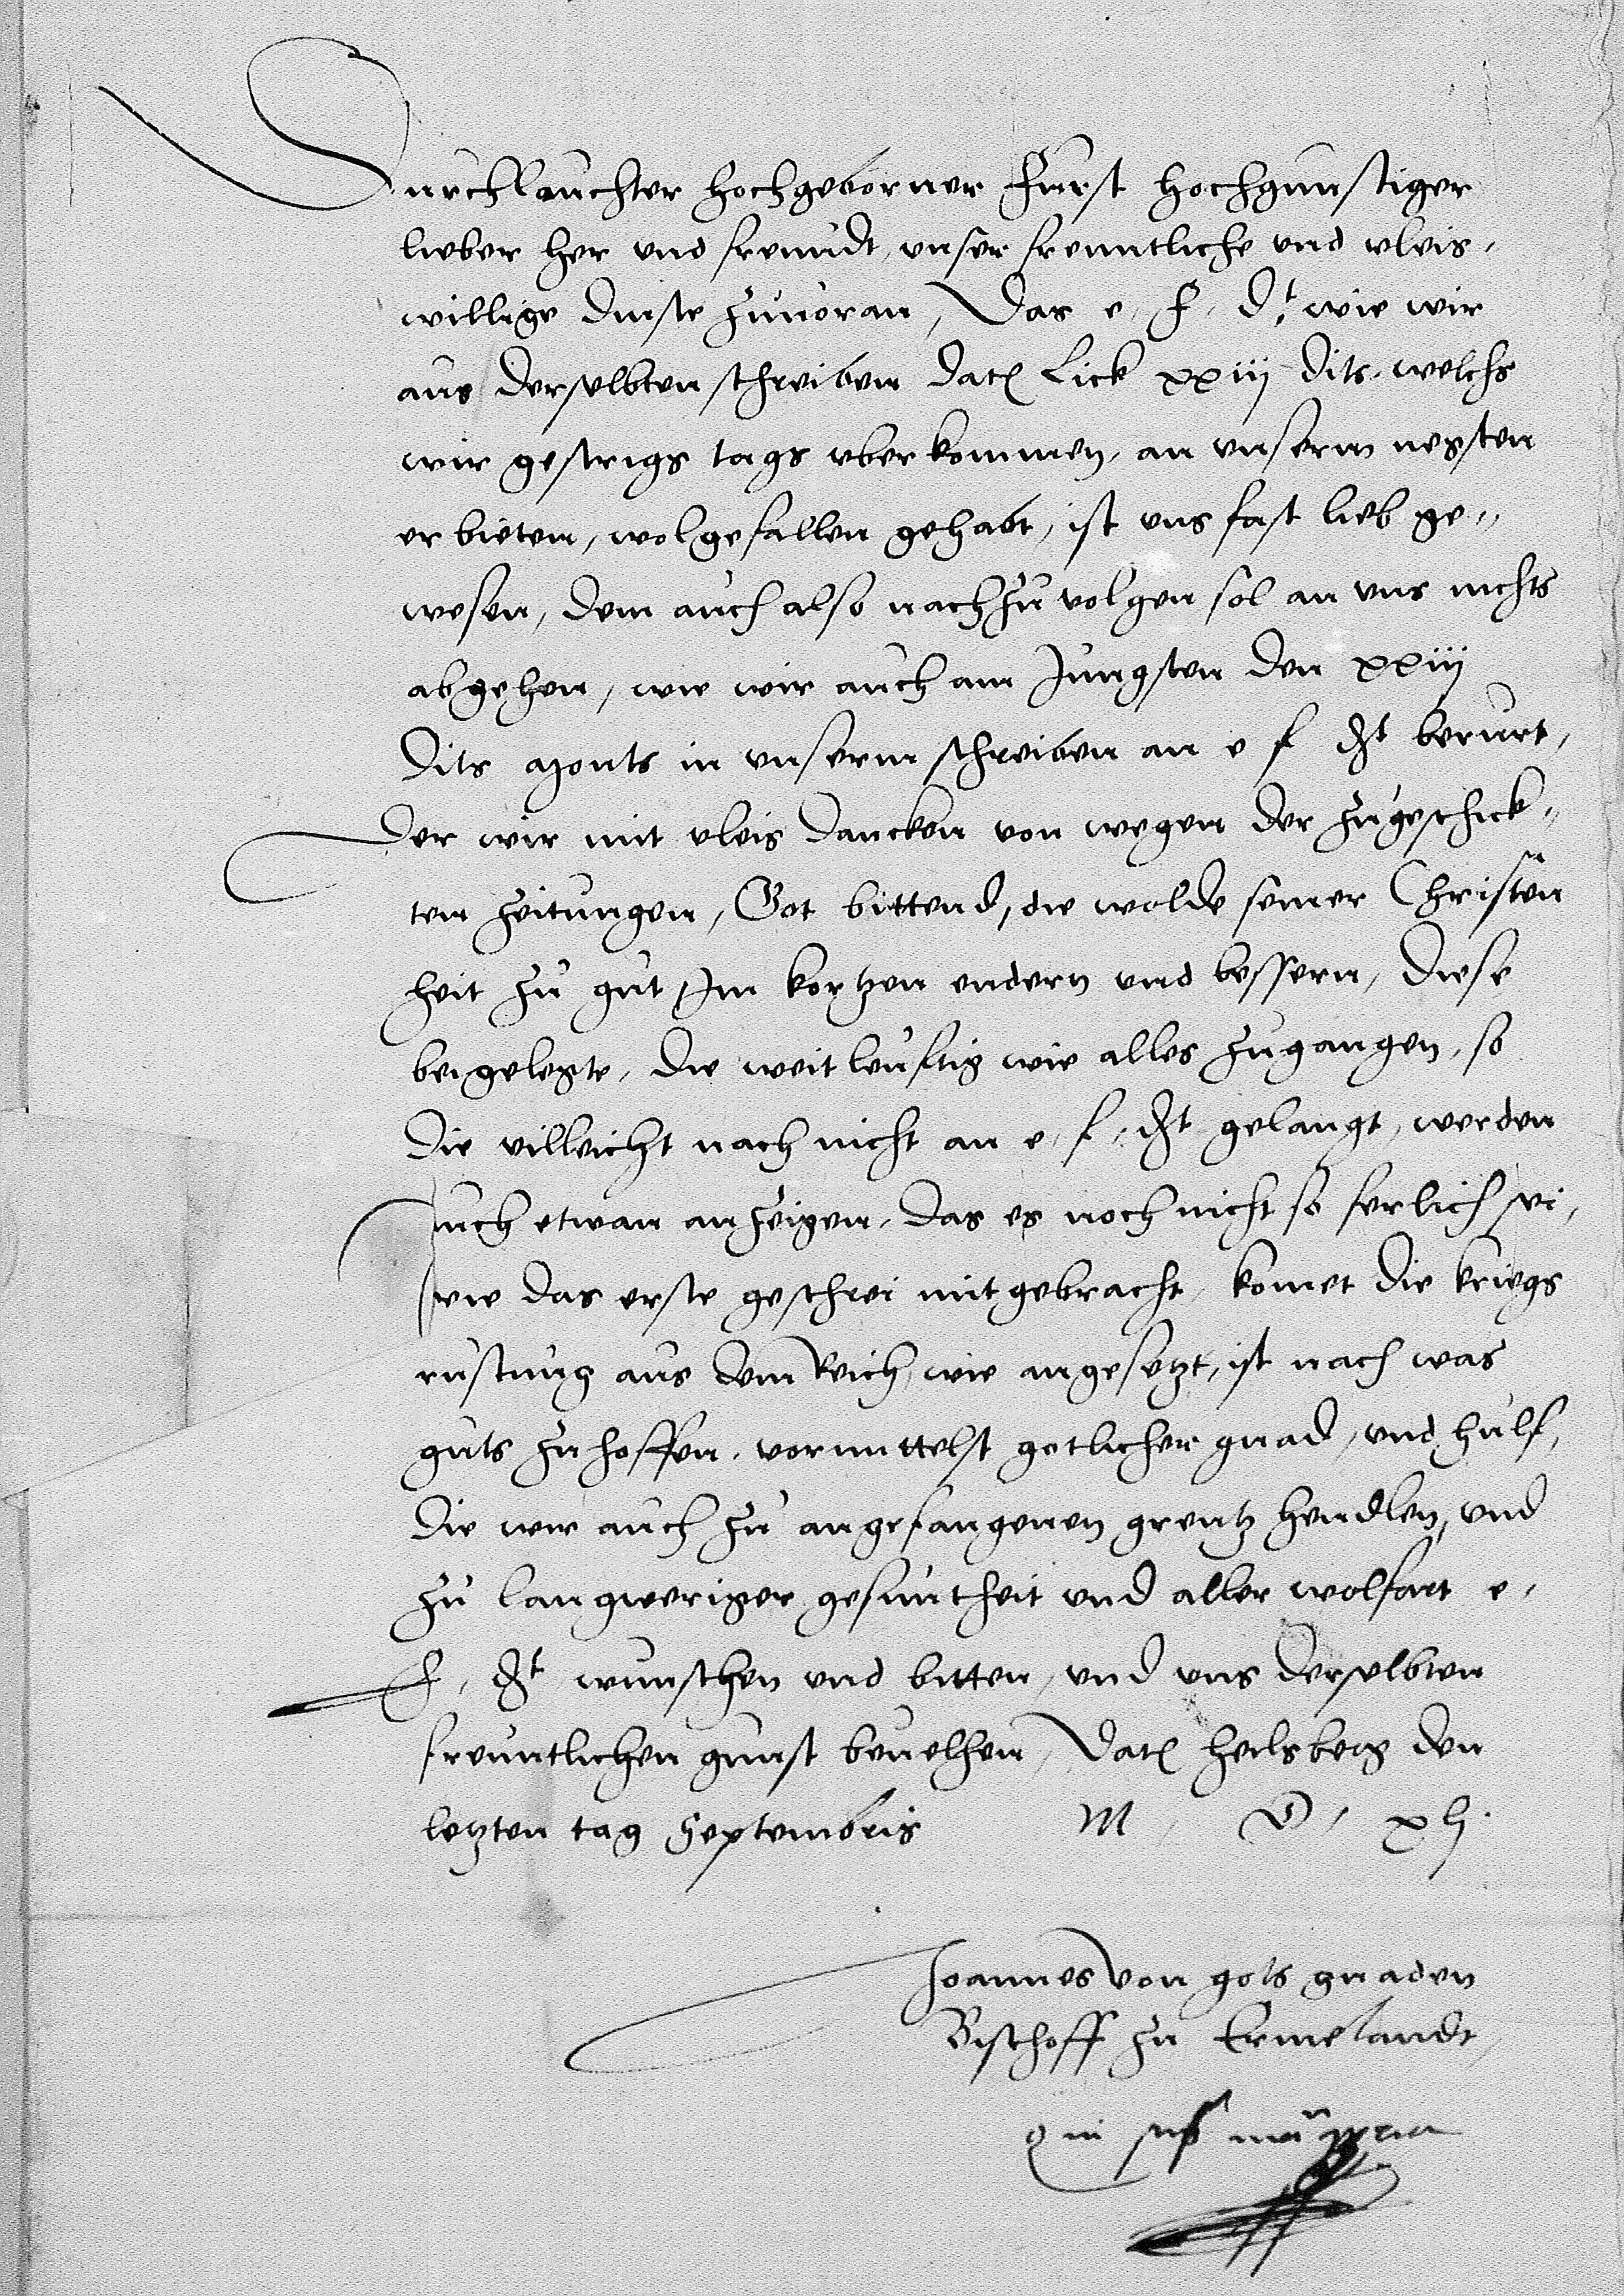 Durchlauchter hochgeborner Furst hochgunstiger
lieber her und freundt, unser freuntliche und vleis,
willige dinste zuuoran, Das e. F. D.t wie wir
aus derselbten schreiben Dat. Lick xxiij dits, welchs
wir gestrigs tags uberkommen, an unserm negsten
erbieten, wolgefallen gehabt, ist uns fast lieb ge„
wesen, dem auch also nachzuvolgen sol an uns nichts
abgehen, wie wir auch am Jungsten den xxiij
dits monts in unserm schreiben an e f Dt berurt,
Der wir mit vleis dancken von wegen der zugeschick„
ten zeitungen, Got bittend, die wolde seiner Christen
heit zu gut Im kortzen endern und bessern, Diese
beigelegte, die weitleuftig wie alles zugangen, so
die villeicht nach nicht an e, f, Dt gelangt, werden
auch etwan anzeigen, das es noch nicht so ferlich sei,
wie das erste geschrei mitgebracht, komet die kriegs
rustung aus dem Reich, wie angesetzt, ist nach was
guts zu hoffen, vormittelst gotlicher gnad, und hulf,
Die wir auch zu angefangenen grentz hendlen, und
zu langweriger gesuntheit und aller wolfart e,
F, Dt wunschen und bitten, und uns derselbten
freuntlichen gunst beuelhen, Dat. Heilsberg den
letzten tag Septembris M, D, xlj.
Joannes von gots gnaden
Bischoff zu Ermelandt,